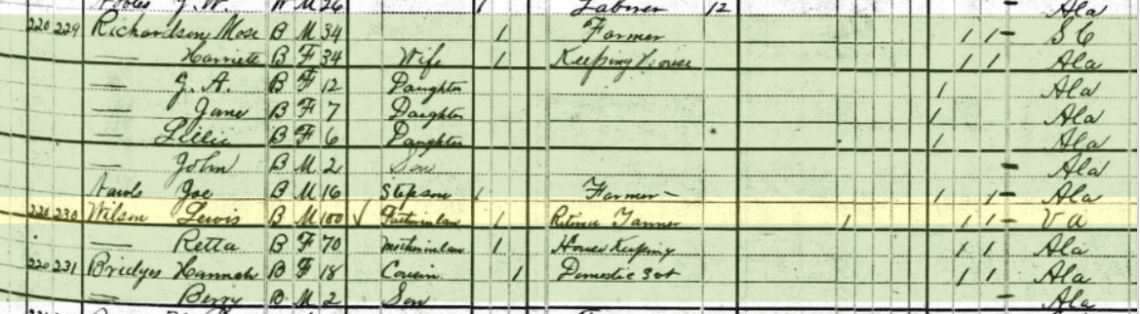 J. W. W M 26 1 Laborer 12 - Ala
220 229 Richardson Mose B M 34 1 Farmer 1 1 - S C
— Harriett B F 34 Wife 1 Keeping House 1 1 Ala
— G. A. B F 12 Daughter 1 Ala
— Jane B F 7 Daughter 1 Ala
— Lillie B F 6 Daughter 1 Ala
— John B M 2 Son - Ala
Joe B M 16 Stepson 1 Farmer 1 1 - Ala
220 230 Wilson Lewis B M 100 ✓ Fatherinlaw 1 Retired Farmer 1 1 1 - VA
— Retta B F 70 Motherinlaw 1 House Keeping 1 1 Ala
220 231 Bridges Hannah B F 18 Cousin 1 Domestic 1 1 Ala
— Berry B M 2 Son - Ala